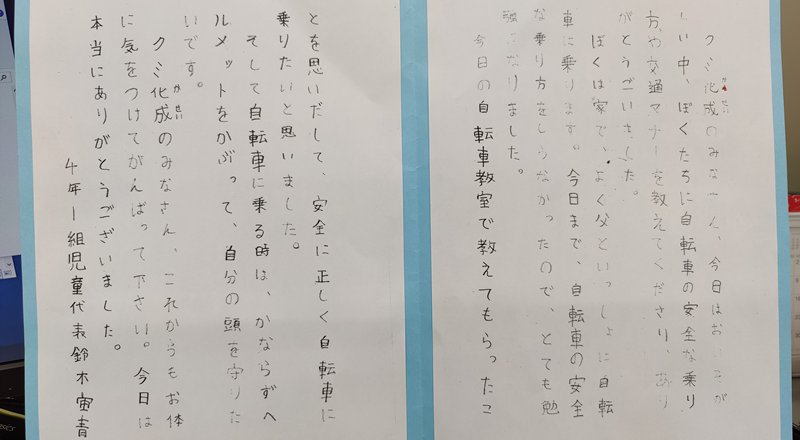 クミ化成のみなさん、今日はおいそが
しい中、ぼくたちに自転車の安全な乗り
方や交通マナーを教えてくださり、あり
がとうございました。
ぼくは家で、よく父といっしょに自転
車に乗ります。今日まで、自転車の安全
な乗り方をしらなかったので、とても勉
強になりました。
今日の自転車教室で教えてもらったこ
とを思いだして、安全に正しく自転車に
乗りたいと思いました。
そして自転車に乗る時は、かならずヘ
ルメットをかぶって、自分の頭を守りた
いです。
クミ化成のみなさん、これからもお体
に気をつけてがんばって下さい。今日は
本当にありがとうございました。
4年1組児童代表鈴木